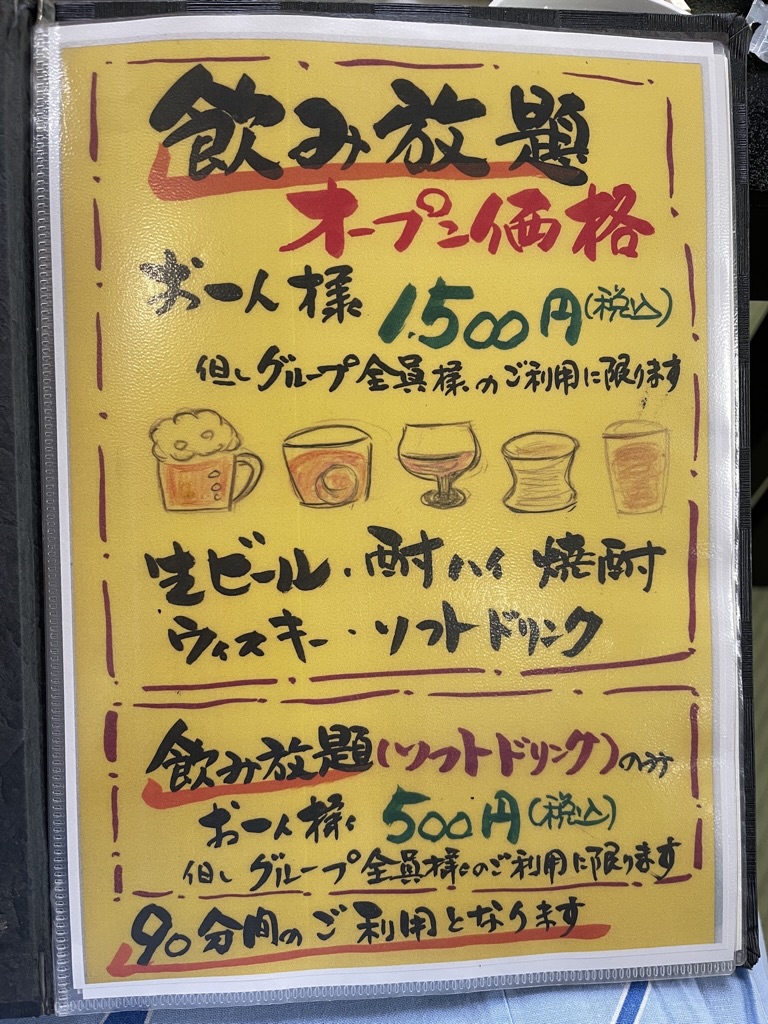 飲み放題
オープン価格
お一人様 1,500円(税込)
但しグループ全員様のご利用に限ります
生ビール・酎ハイ 焼酎
ウィスキー・ソフトドリンク
飲み放題(ソフトドリンク)の方
お一人様 500円(税込)
但しグループ全員様のご利用に限ります
90分間のご利用となります